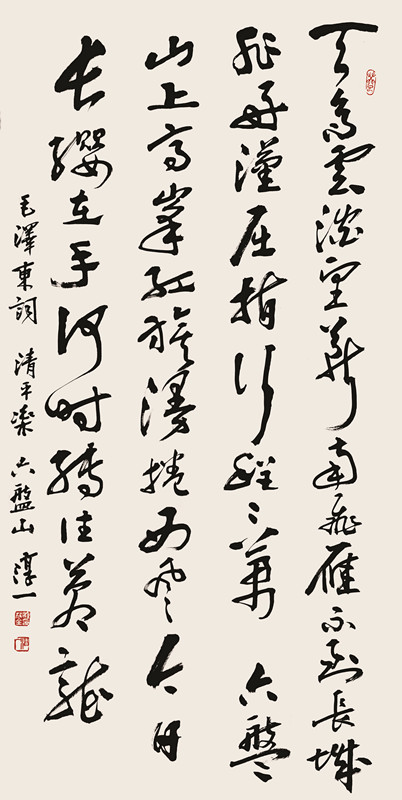 天高雲淡望斷南飛雁不到長城
非好漢屈指行程二萬 六盤
山上高峯紅旗漫捲西風今日
長纓在手何時縛住蒼龍
毛澤東詞 清平樂 六盤山 淳一